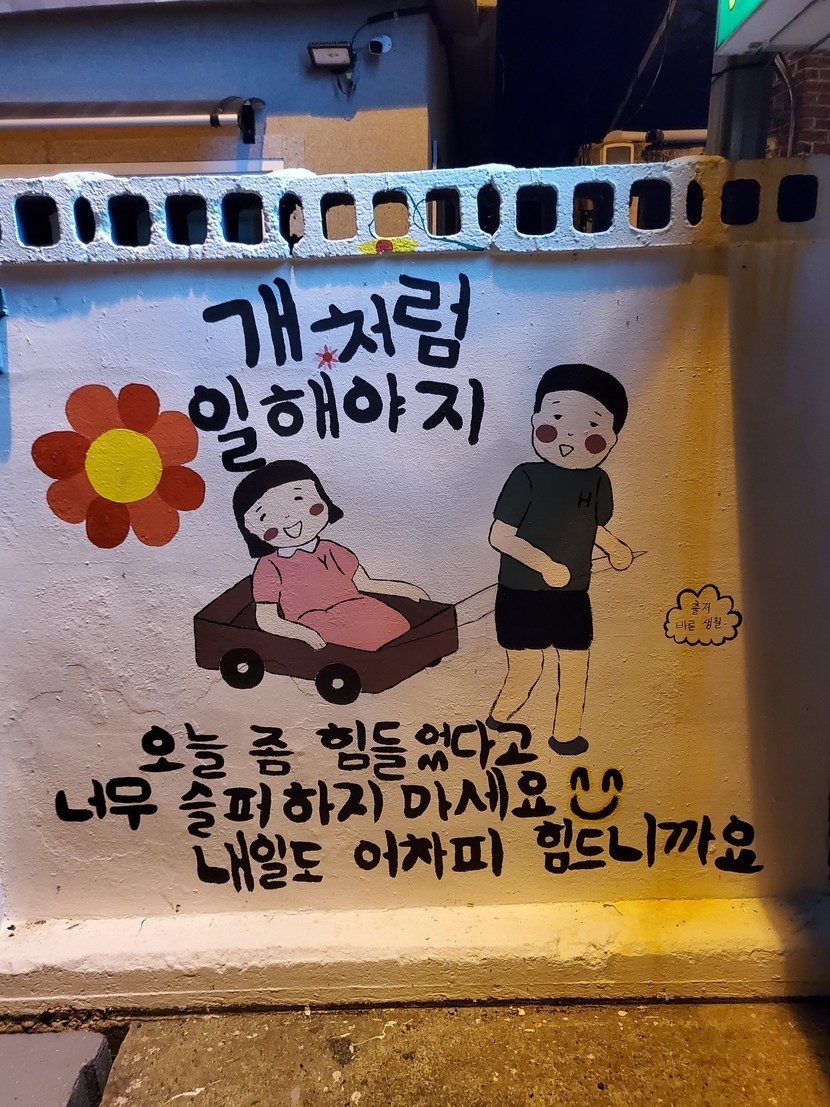 개처럼
일해야지
H
Y
출저
바른 생활
오늘 좀 힘들었다고
너무 슬퍼하지 마세요
내일도 어차피 힘드니까요